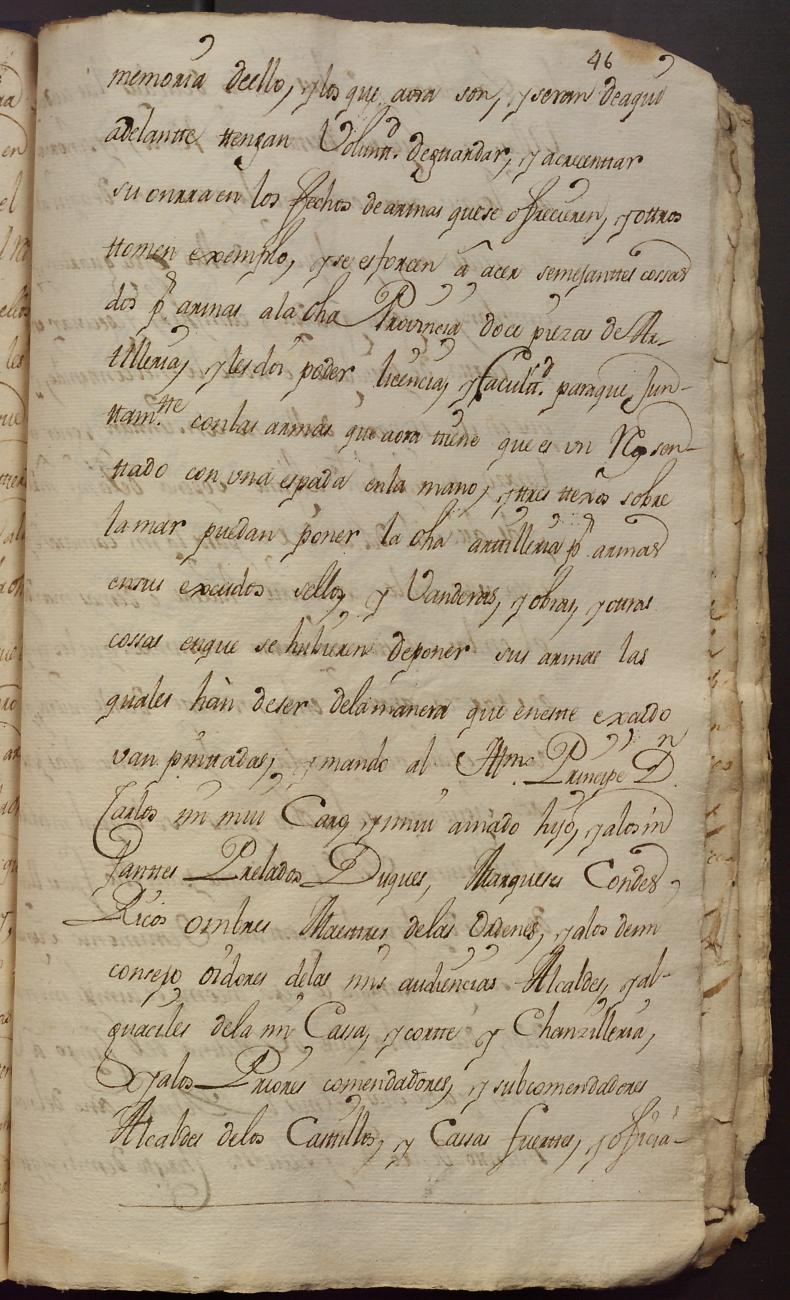 46
memoria deello, y los que aora son, y seran deaqui
adelantte ttengan Volunt.d deguardar, y acrecenttar
su onrra en los fechos dearmas quese ofrecieren, y ottros
ttomen exemplo, y se esfuercen â acer semejanttes cossas
dos p.r armas ala dha Provincia doce piezas de Ar-
ttilleria, y les doi poder licencia, y facultt.d paraque Jun-
ttam.tte con las armas que aora ttiene que es vn Rey sen-
ttado con vna espada en la mano, y ttres ttexos sobre
la mar puedan poner la dha arttilleria p.r armas
ensus excudos sellos, y Vanderas, y obras, y ottras
cossas enque se hubieren deponer sus armas las
quales hàn deser dela manera que enestte excudo
van pinttadas, y mando al Ill.mo Principe D.n
Carlos mi mui Caro, y mui amado hijo, y alos in
fanttes Prelados Duques, Marqueses Condes,
Ricos ombres Maesttres delas Ordenes, y alos demi
consejo oidores delas mis audiencias Alcaldes, y al-
guaciles dela mi Cassa, y cortte y Chanzilleria,
y alos Priores comendadores, y subcomendadores
Alcaides delos Casttillos, y Cassas fuerttes, y oficia-